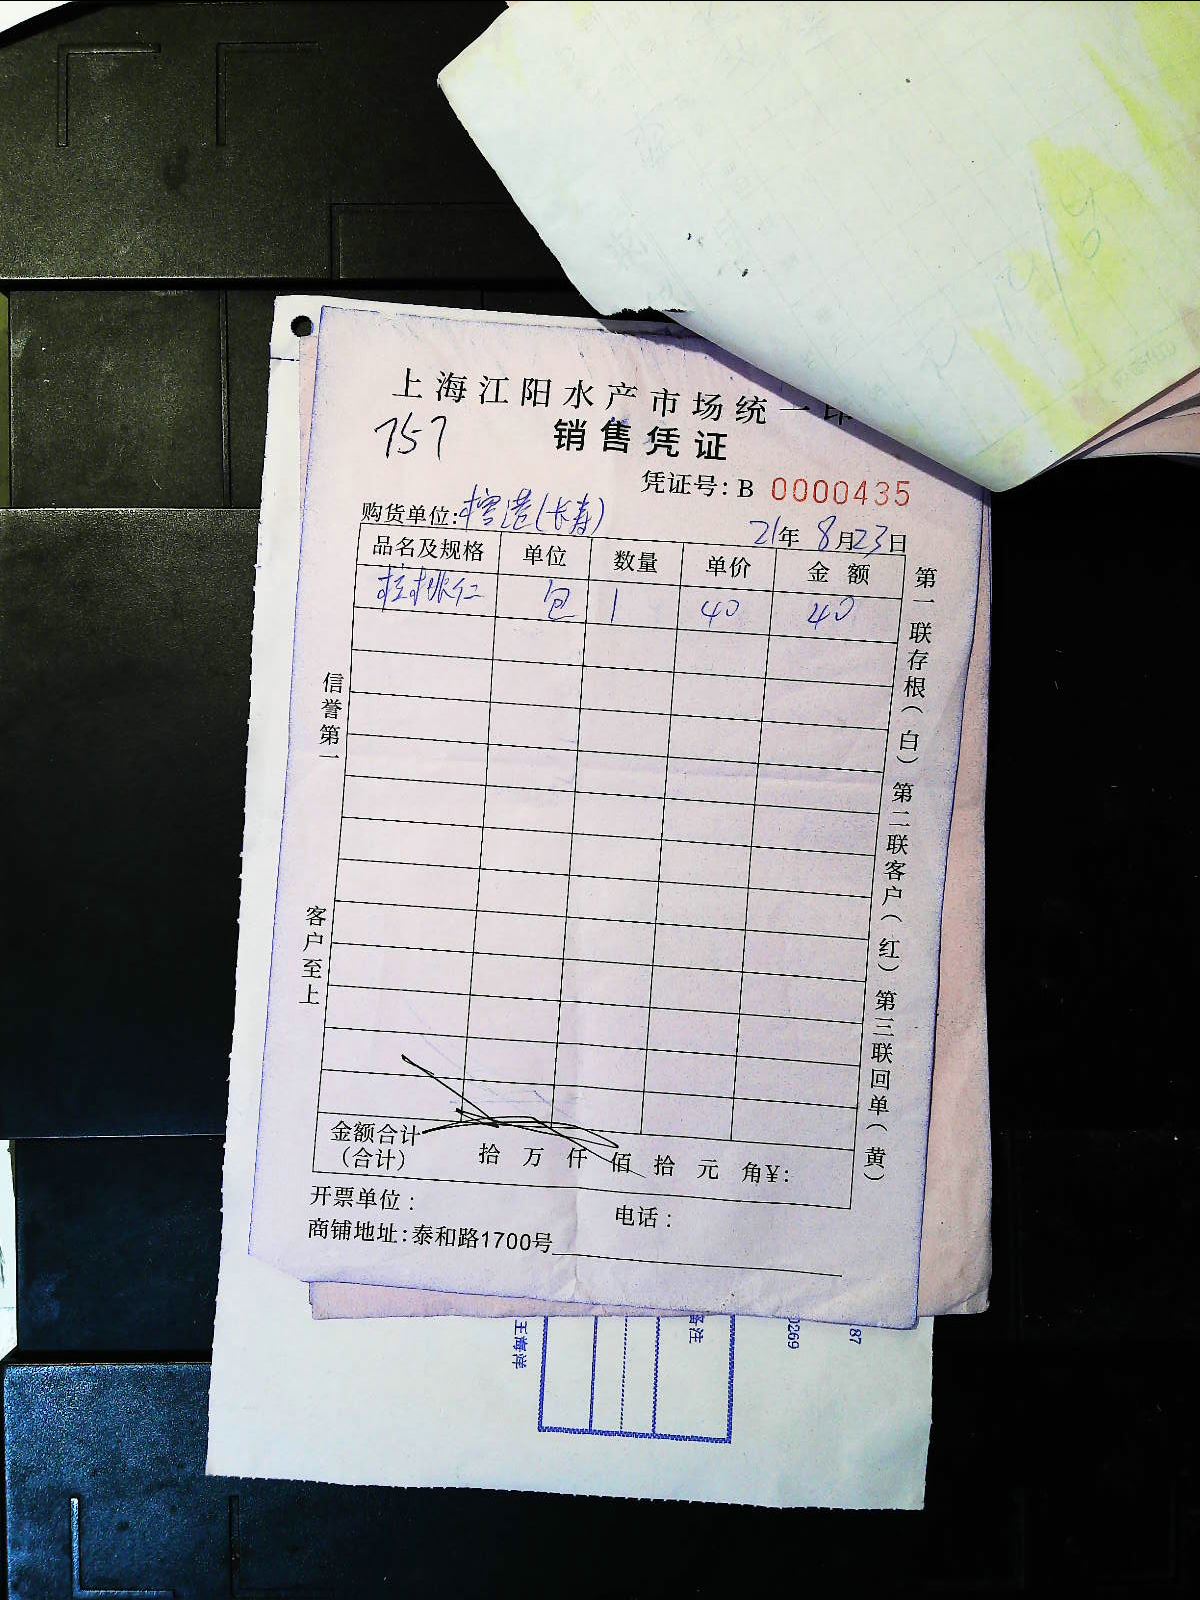 上海江阳水产市场统一印
757
销售凭证
凭证号: B 0000435
购货单位: 港(长寿)
21年 8月23日
品名及规格 单位 数量 单价 金 额
桃仁 包 1 40 40
信誉第一
客户至上
第一联存根(白) 第二联客户(红) 第三联回单(黄)
金额合计
(合计)
拾 万 仟 佰 拾 元 角¥:
开票单位:
电话:
商铺地址: 泰和路1700号
王海洋
备注
0269
87